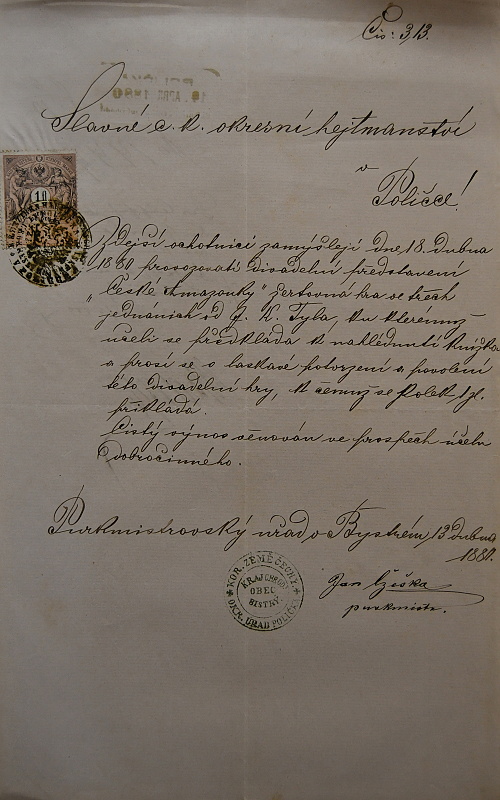 Čís: 313.
19. APR 1880
Slavné c. k. okresní hejtmanství
v
Poličce!
10
Zdejší ochotníci zamýšlejí dne 18. dubna
1880 provozovati divadelní představení
„České Amazonky" žertovná hra ve třech
jednáních od J. K. Tyla, ku kterémuž
účeli se předkládá k nahlédnutí knížka
a prosí se o laskavé potvrzení a povolení
této divadelní hry, k čemuž se kolek 1 zl.
přikládá.
Čistý výnos věnován ve prospěch účelu
dobročinného.
Purkmistrovský úřad v Bystrém, 13 dubna
1880.
KOR. ZEMĚ ČECHY
KRAJ CHRUD.
OBEC
BISTRÝ.
OKR. URAD POLIČKA
Jan
purkmistr.